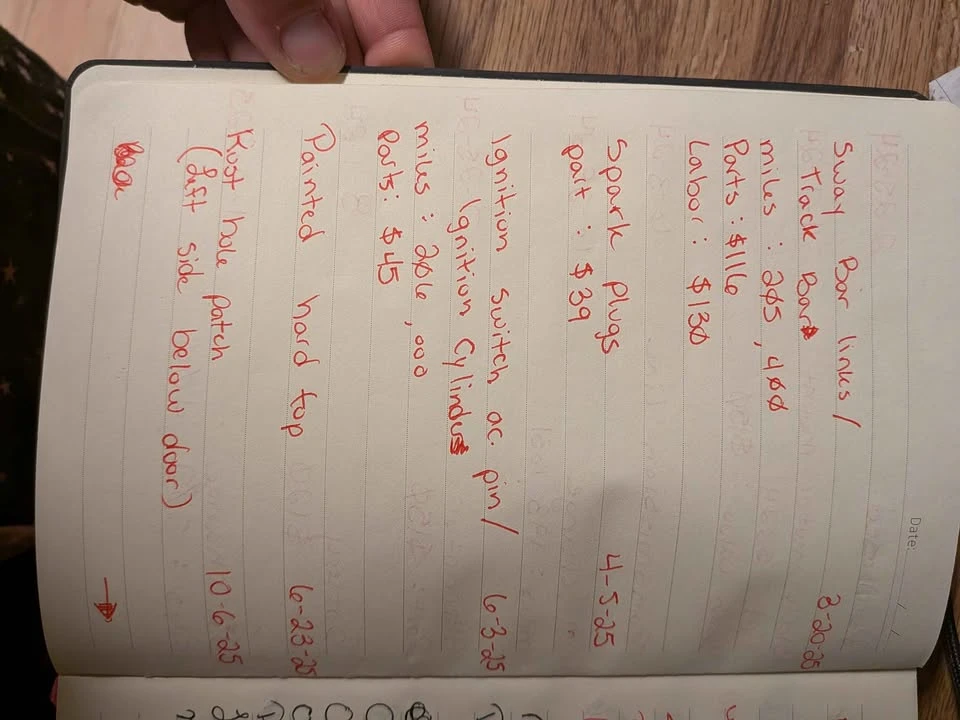 Date:
Sway Bar links/
Track Bar
3-20-25
miles : 205,400
Parts : $116
Labor : $130
Spark Plugs 4-5-25
part : $39
Ignition switch ac. pin/ 6-3-25
Ignition Cylinder
miles : 206,000
Parts : $45
Painted hard top 6-23-25
Rust hole patch 10-6-25
(Left side below door)